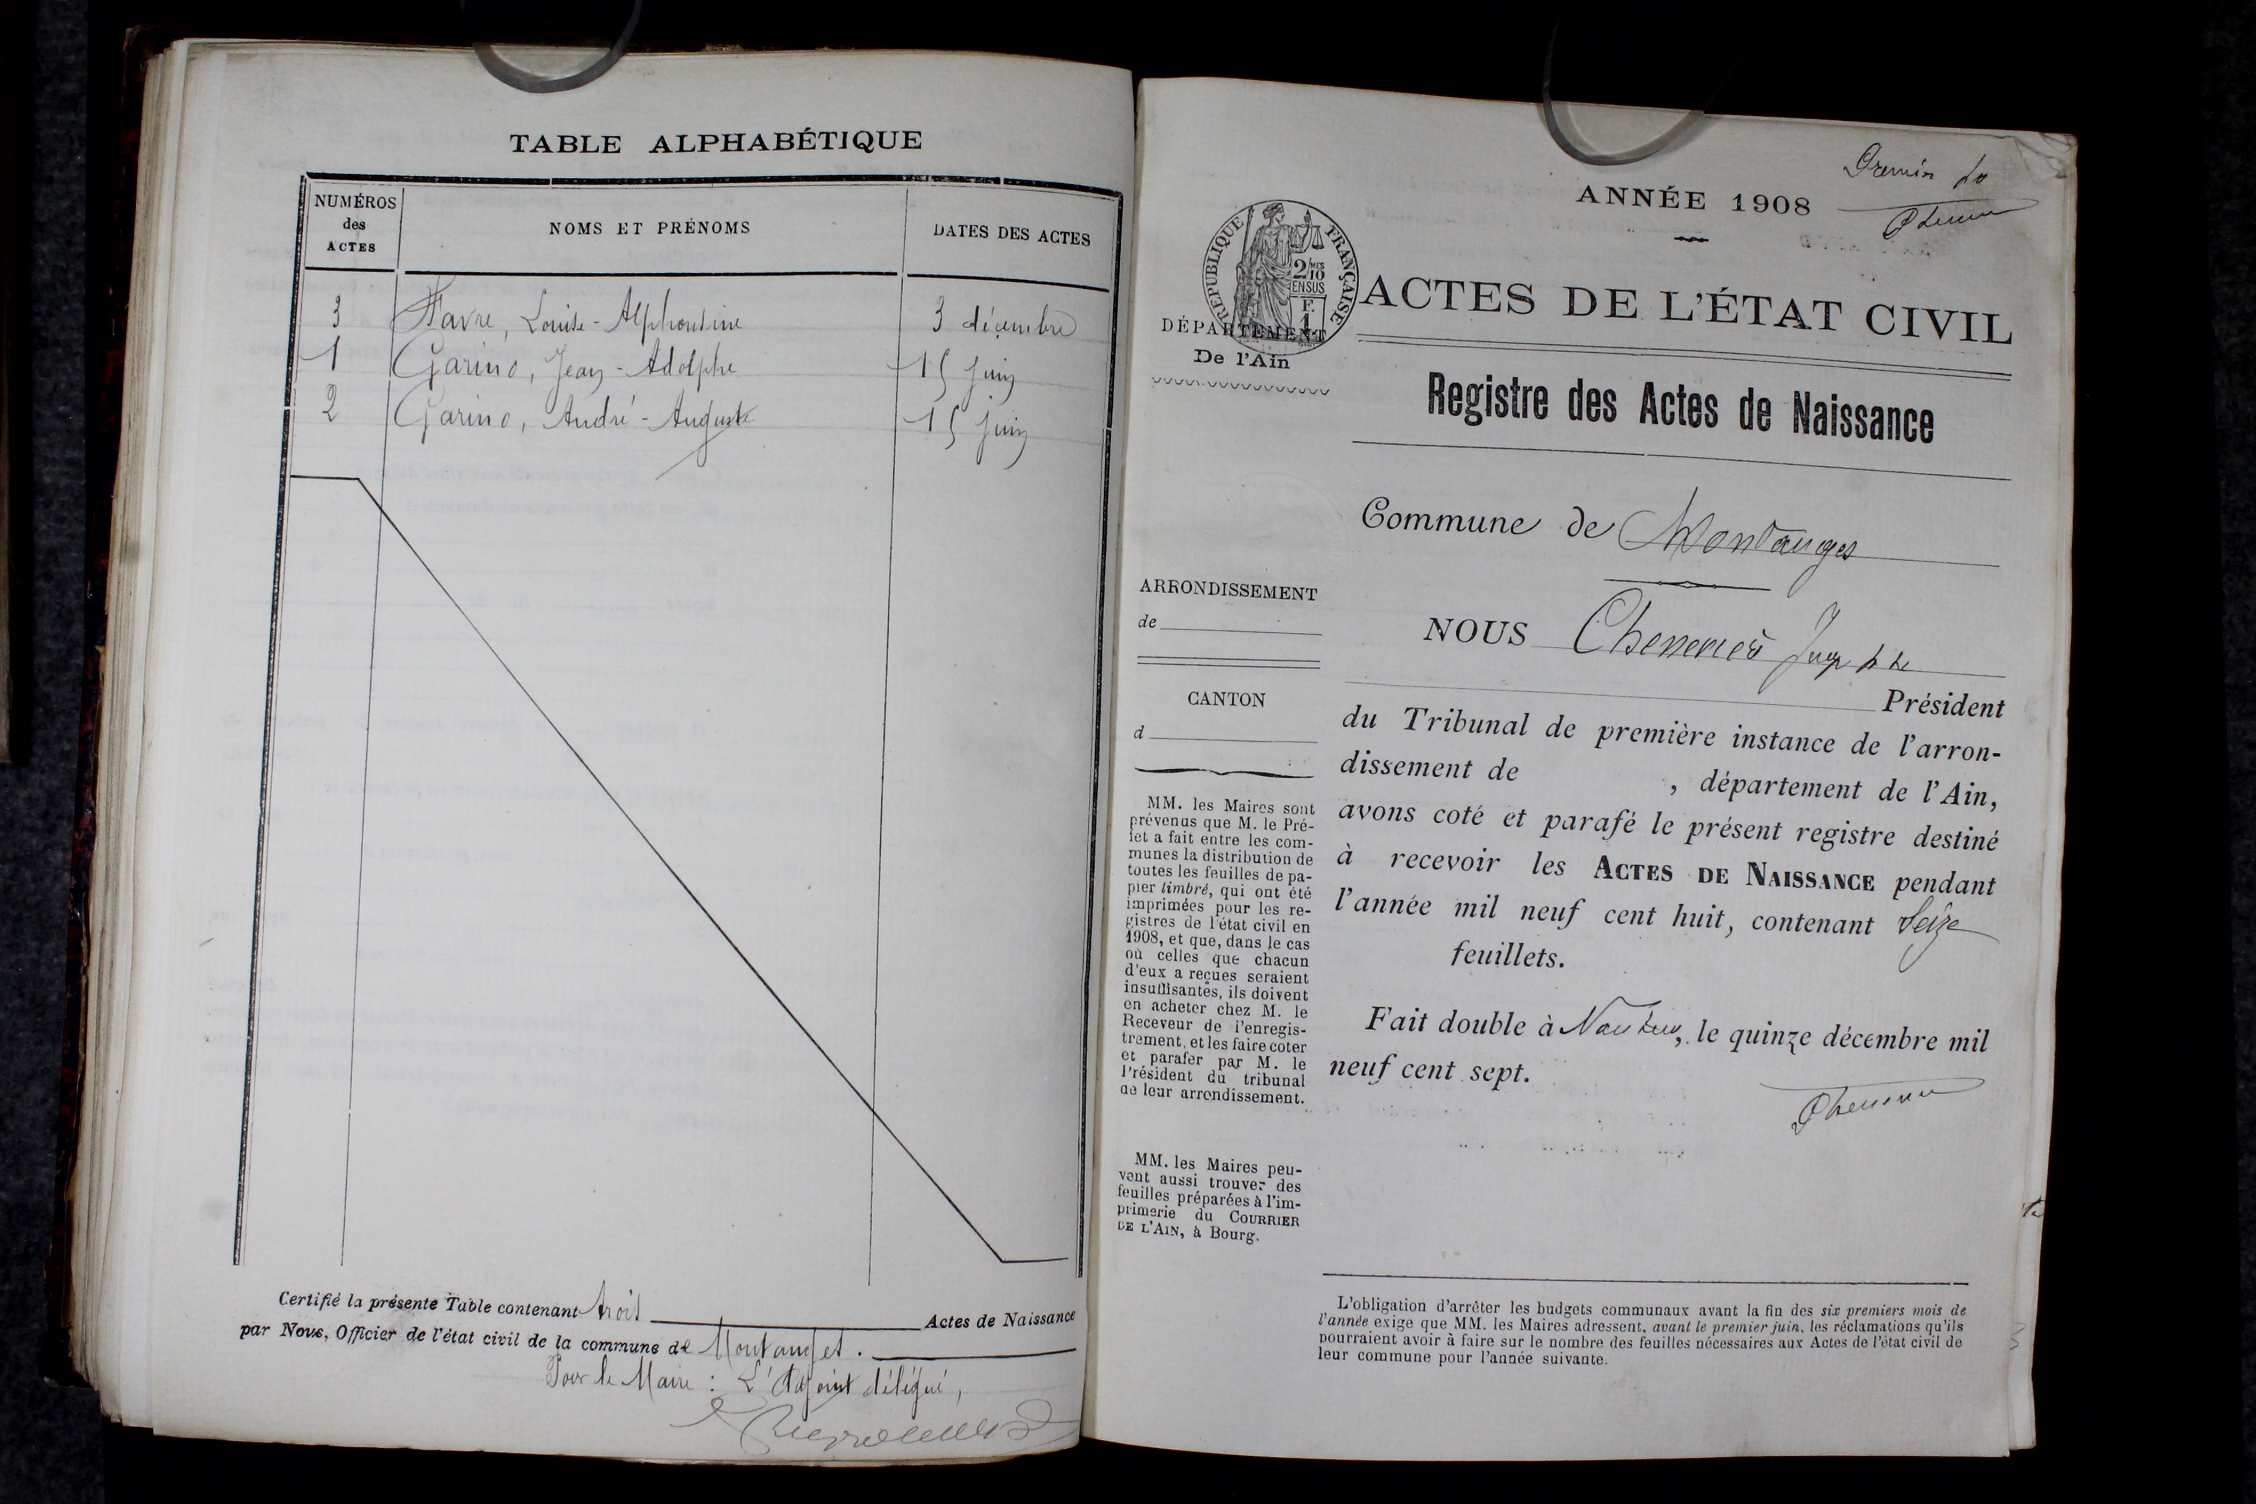 TABLE ALPHABÉTIQUE
NUMÉROS
des
ACTES
NOMS ET PRÉNOMS
DATES DES ACTES
3 Favre, Louise-Alphonsine 3 décembre
1 Garino, Jean-Adolphe 15 juin
2 Garino, André-Auguste 15 juin
Certifié la présente Table contenant trois Actes de Naissance
par Nous, Officier de l'état civil de la commune de Montanges.
Pour le Maire : L'Adjoint délégué,
ANNÉE 1908
RÉPUBLIQUE FRANÇAISE
2/10
EN SUS
F.
1
DÉPARTEMENT
De l'Ain
ACTES DE L'ÉTAT CIVIL
Registre des Actes de Naissance
Commune de Montanges
ARRONDISSEMENT
de
CANTON
d
MM. les Maires sont
prévenus que M. le Pré-
fet a fait entre les com-
munes la distribution de
toutes les feuilles de pa-
pier timbré, qui ont été
imprimées pour les re-
gistres de l'état civil en
1908, et que, dans le cas
où celles que chacun
d'eux a reçues seraient
insuffisantes, ils doivent
en acheter chez M. le
Receveur de l'enregis-
trement, et les faire coter
et parafer par M. le
Président du tribunal
de leur arrondissement.
MM. les Maires peu-
vent aussi trouver des
feuilles préparées à l'im-
primerie du COURRIER
DE L'AIN, à Bourg.
NOUS
Président
du Tribunal de première instance de l'arron-
dissement de , département de l'Ain,
avons coté et parafé le présent registre destiné
à recevoir les ACTES DE NAISSANCE pendant
l'année mil neuf cent huit, contenant Seize
feuillets.
Fait double à Nantua, le quinze décembre mil
neuf cent sept.
L'obligation d'arrêter les budgets communaux avant la fin des six premiers mois de
l'année exige que MM. les Maires adressent, avant le premier juin, les réclamations qu'ils
pourraient avoir à faire sur le nombre des feuilles nécessaires aux Actes de l'état civil de
leur commune pour l'année suivante.